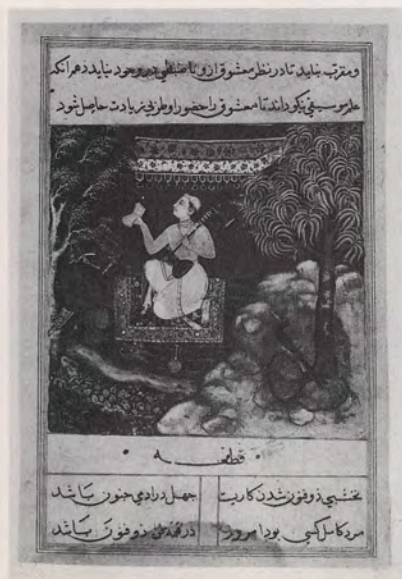 و مقرب بناید تا در نظر معشوق ازو ناضبطی در وجود نیاید دهم آنکه
علم موسیقی نیکو داند تا معشوق را حضور او طربی زیادت حاصل شود
قطعه
نخشبی ذوفنون شدن کاریست
جهل در آدمی جنون باشد
مرد کامل کسی بود امروز
در همه فن ذوفنون باشد